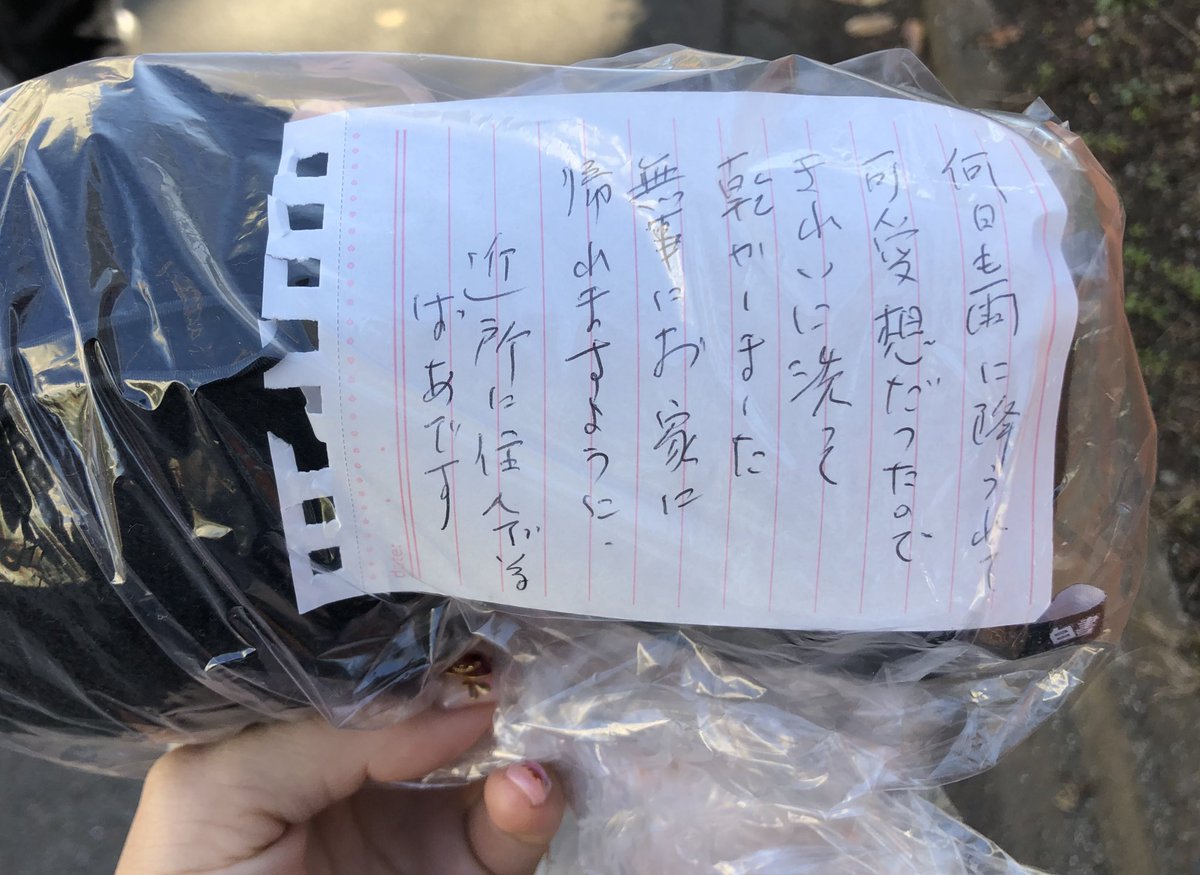 何日も雨に降られて
可愛想だったので
きれいに洗って
乾かしました
無事にお家に
帰れますように、
近所に住んでる
ばあです
date: